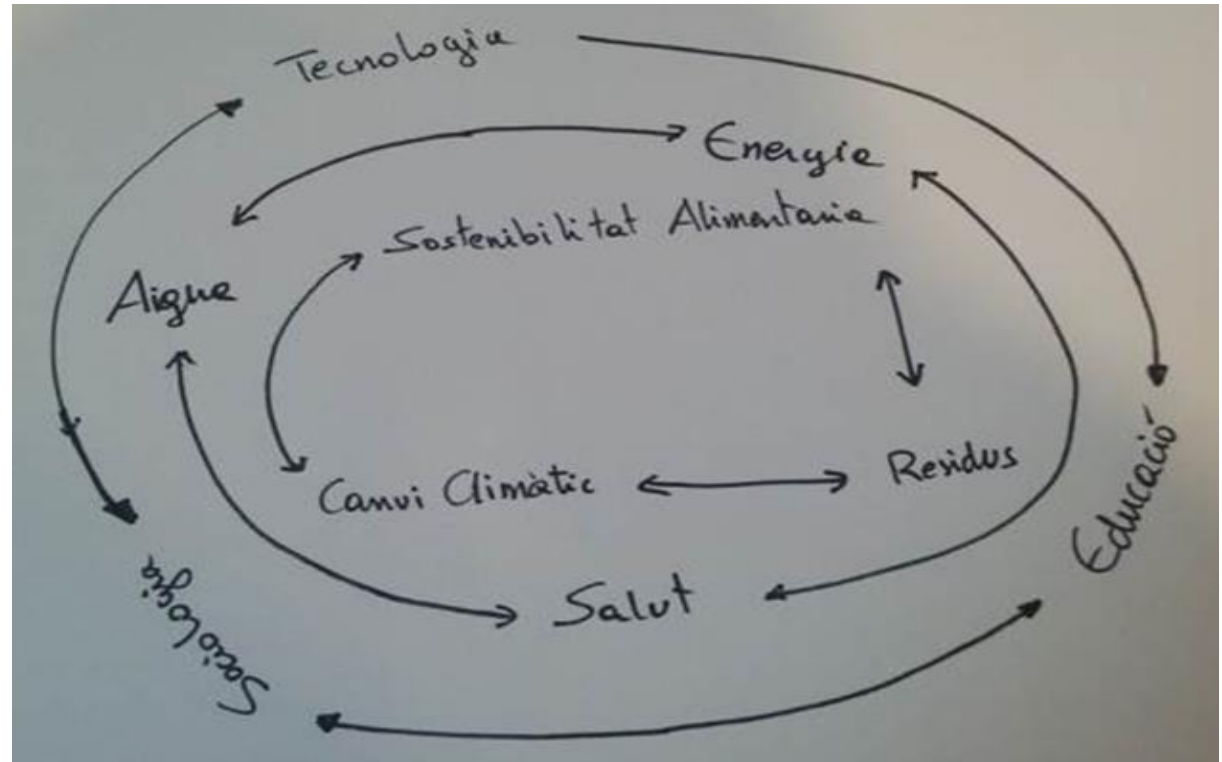 Tecnologia
Energia
Sostenibilitat Alimentaria
Aigua
Residus
Canvi Climàtic
Educació
Salut
Sociologia